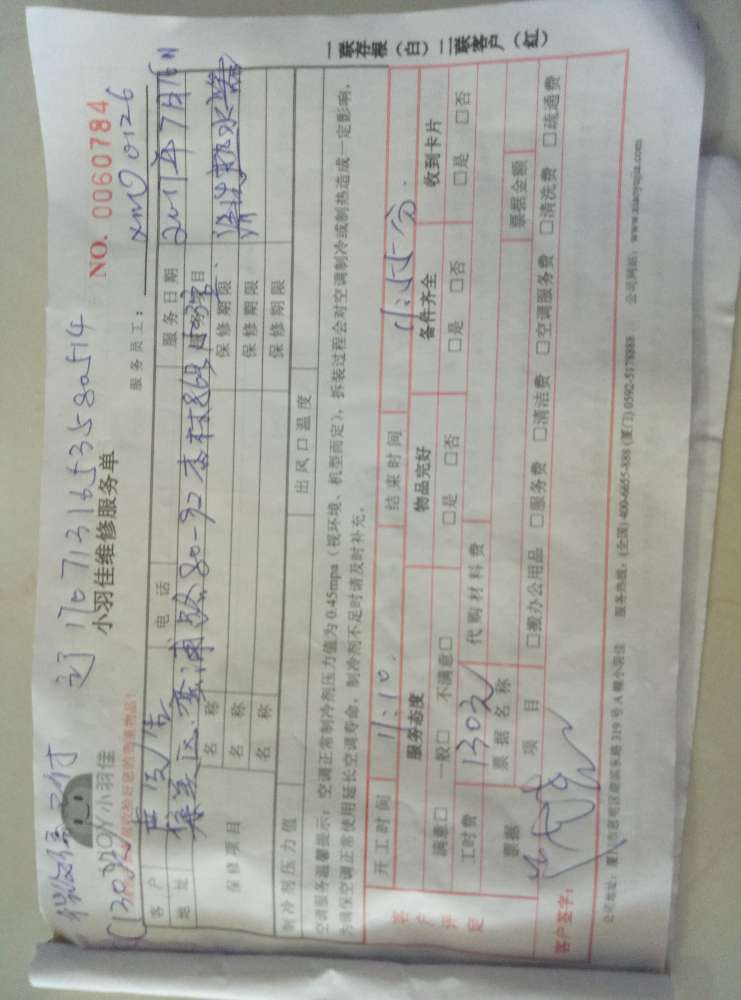 微信已付
170713165358a514
(130元)
小羽佳
小羽佳维修服务单
NO. 0060784
服务员工： xm0126
客户 电话 服务日期 2017年7月16日
地址
保修项目 名称 保修期限 清洗热水器
名称 保修期限
名称 保修期限
制冷剂压力值 出风口温度
空调服务温馨提示：空调正常制冷剂压力值为0.45mpa（视环境、机型而定），拆装过程会对空调制冷或制热造成一定影响，
为确保空调正常使用延长空调寿命，制冷剂不足时请及时补充。
开工时间 11:10 结束时间
客户评定
服务态度 物品完好 备件齐全 收到卡片
满意□ 一般□ 不满意□ □是 □否 □是 □否 □是 □否
工时费 130元 代购材料费
票据 票据名称 票据金额
项目 □搬办公用品 □服务费 □清洁费 □空调服务费 □清洗费 □疏通费
客户签字：
公司地址：厦门市思明区莲滨东路319号A幢小羽佳 服务热线：(全国) 400-6655-888 (厦门) 0592-5178888 公司网站：www.xiaoyujia.com
一联存根（白）二联客户（红）